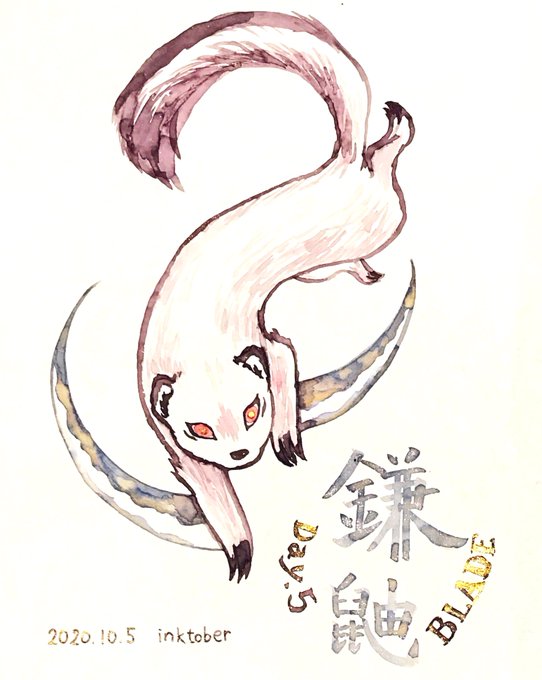 鎌
鼬
Day.5
BLADE
2020.10.5 inktober